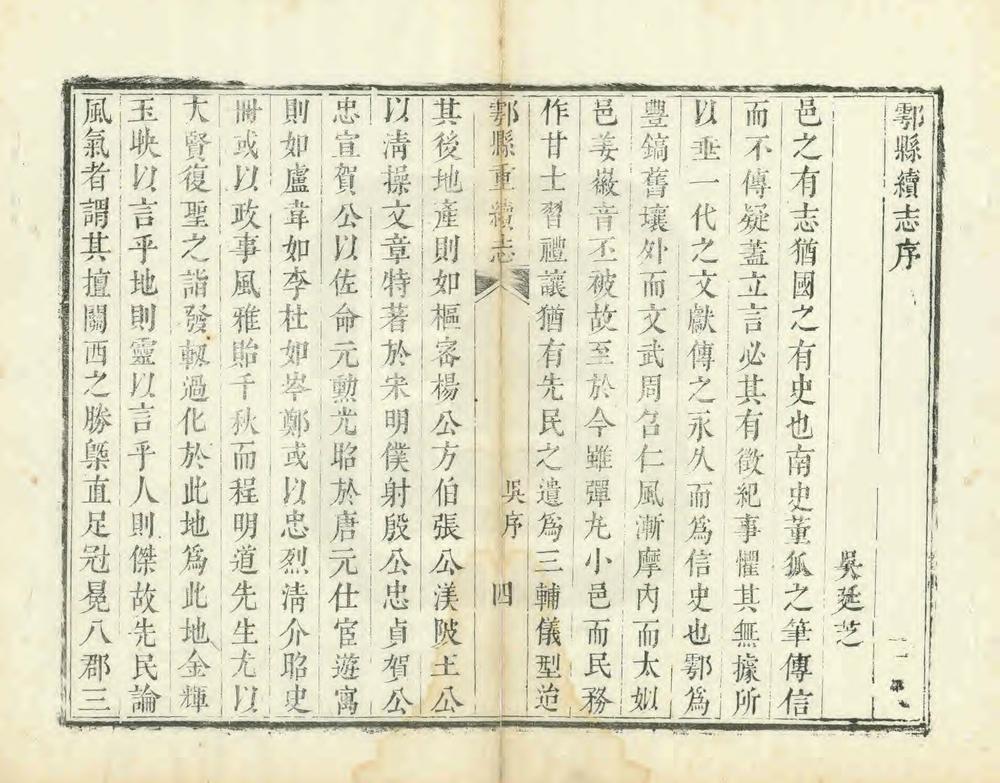 鄠縣續志序
吳廷芝
邑之有志猶國之有史也南史董狐之筆傳信
而不傳疑蓋立言必其有徵紀事懼其無據所
以垂一代之文獻傳之永久而爲信史也鄠爲
豐鎬舊壤外而文武周召仁風漸摩內而太姒
邑姜徽音丕被故至於今雖彈丸小邑而民務
作甘士習禮讓猶有先民之遺爲三輔儀型迨
鄠縣重續志 吳序 四
其後地產則如樞密楊公方伯張公渼陂王公
以清操文章特著於宋明僕射殷公忠貞賀公
忠宣賀公以佐命元勳光昭於唐元仕宦遊寓
則如盧韋如李杜如岑鄭或以忠烈清介昭史
冊或以政事風雅貽千秋而程明道先生尤以
大賢復聖之詣發軔過化於此地爲此地金輝
玉映以言乎地則靈以言乎人則傑故先民論
風氣者謂其擅關西之勝槩直足冠冕八郡三